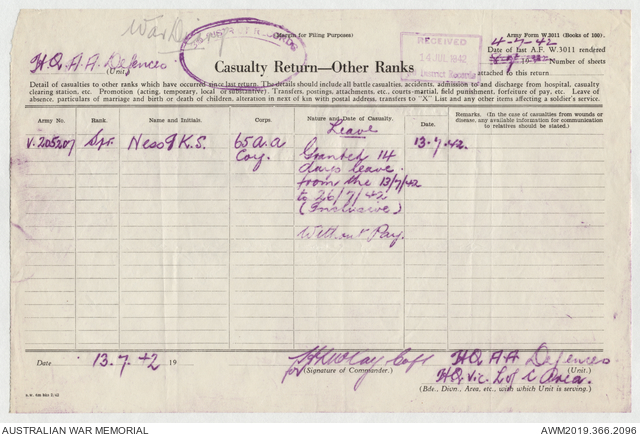 War Diary
(Margin for Filing Purposes)
Army Form W.3011 (Books of 100).
4-7-42
RECEIVED
14 JUL 1942
District Records
DISTRICT RECORDS
Date of last A.F. W.3011 rendered
Number of sheets
attached to this return
H.Q. A.A. Defences
(Unit.)
Casualty Return—Other Ranks
Detail of casualties to other ranks which have occurred since last return. The details should include all battle casualties, accidents, admission to and discharge from hospital, casualty
clearing station, etc. Promotion (acting, temporary, local or substantive). Transfers, postings, attachments, etc., courts-martial, field punishment, forfeiture of pay, etc. Leave of
absence, particulars of marriage and birth or death of children, alteration in next of kin with postal address, transfers to "X" List and any other items affecting a soldier's service.
Army No.
Rank.
Name and Initials.
Corps.
Nature and Date of Casualty.
Date.
Remarks. (In the case of casualties from wounds or
disease, any available information for communication
to relatives should be stated.)
Leave
V.205207
K.S.
65 A.A
Coy.
13.7.42.
Granted 14
days leave.
from the 13/7/42
to 26/7/42
(Inclusive)
Without Pay.
Date
13.7.42
19
for
(Signature of Commander.)
Capt
H.Q. A.A. Defences
(Unit.)
H.Q. Vic. L of C Area.
(Bde., Divn., Area, etc., with which Unit is serving.)
AUSTRALIAN WAR MEMORIAL
AWM2019.366.2096